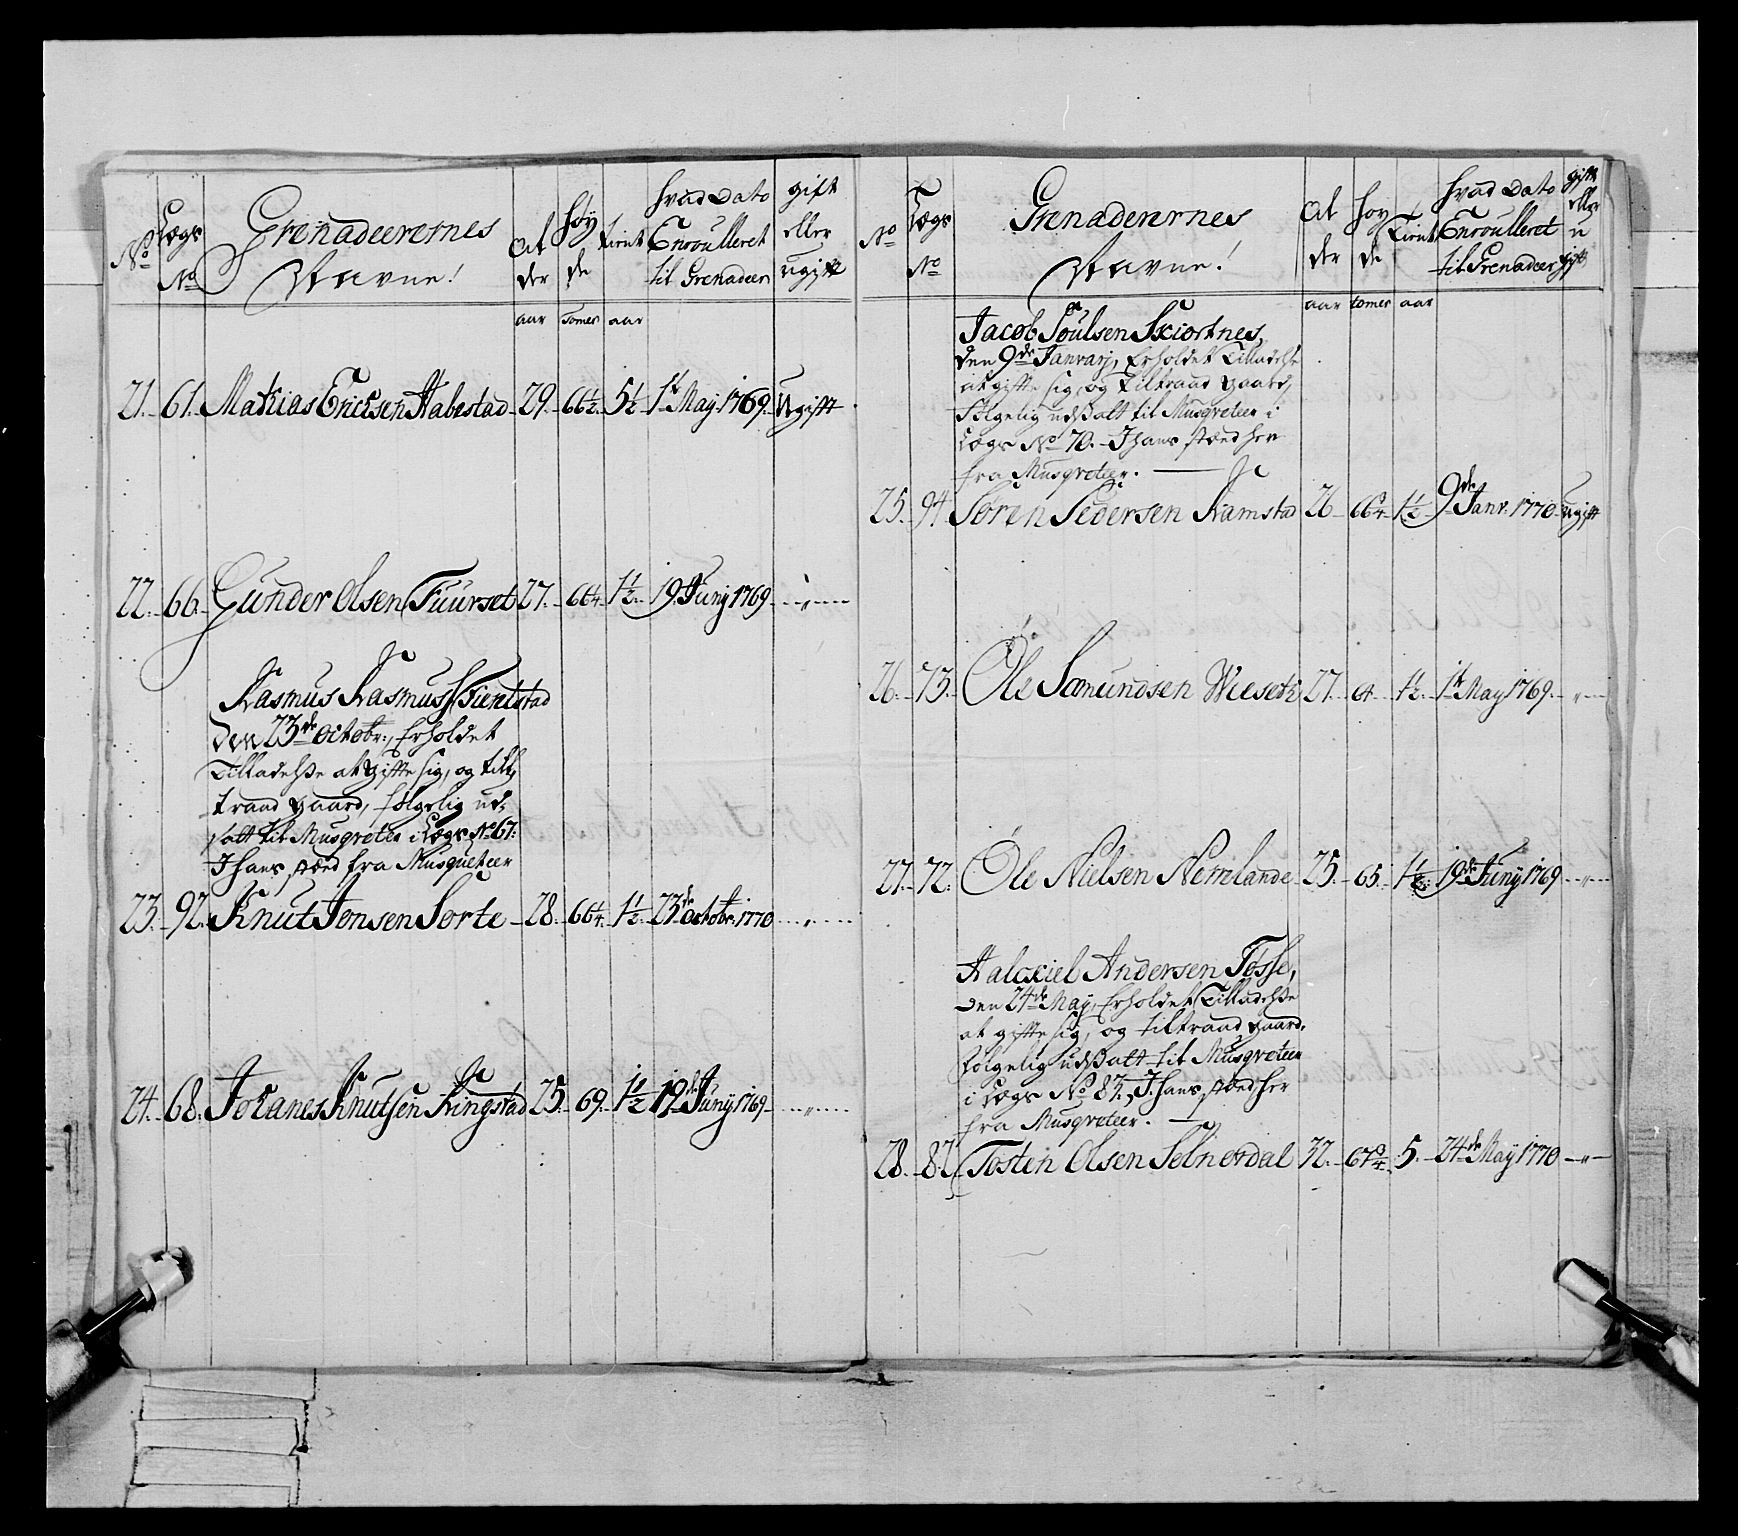 No
Lægs No
Grenadeerernes Navne!
Al der
høy de
tient
hvad Dato Enroulleret til Grenadeer
gift eller ugift
aar tomer aar
21. 61. Mathias Ericksen Habestad 29. 66½ 5½ 1t May 1769. Ugift
22. 66. Gunder Olsen Tuurset 27. 66¼ 1½ 19. Juny 1769 - " -
Rasmus Rasmuss: Tientstad
den 23de octobr:, Erholdet
Tilladelsse at gifte sig, og till
traad gaard, følgelig ud-
satt til Musqveteer i Lægs No 67:
I hans stæd fra Musqueteer
23. 92. Knut Jonsen Sorte 28. 66¼. 1½ 23de octobr: 1770 - " -
24. 68. Johanes Knutsen Ringstad 25. 69. 1½ 19de Juny 1769 - " -
No
Lægs No
Grenaderernes Navne!
Al der
høy de
Tient
hvad Dato Enroulleret til Grenadeer
gift eller u gift
aar tomer aar
Jacob Poulsen Skiortnes,
den 9de Janvarj, Erholdet Tilladelse
at gifte sig, og Tiltraad gaard,
følgelig udssatt til Musqveteer i
Lægs No 70. I hans stæd her
fra Musqveteer.
25. 94. Søren Pedersen Ramstad 26 66¾ 1½ 9de Janv: 1770 Ugift
26. 73. Ole Samundsen Wieseth 27. 64. 1½. 1t May 1769. "
27. 72. Ole Nielsen Nerrelande 25. 65. 1½. 19de Juny 1769 - " -
Halckiel Andersen Tosse,
den 24de May, Erholdet Tilladelsse
at gifte sig, og tiltraad gaard,
følgelig udssatt til Musqveteer
i Lægs No 87. I hans stæd her
fra Musqveteer.
28. 87. Tosten Olsen Selnerdal 32. 67¾. 5. 24de May 1770 - " -